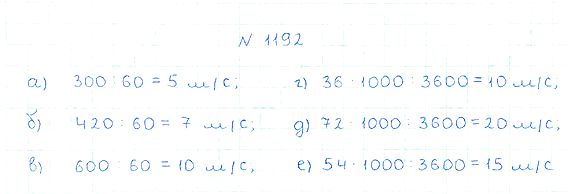 N 1192
а) 300 : 60 = 5 м/с; г) 36 · 1000 : 3600 = 10 м/с,
б) 420 : 60 = 7 м/с; д) 72 · 1000 : 3600 = 20 м/с,
в) 600 : 60 = 10 м/с, е) 54 · 1000 : 3600 = 15 м/с